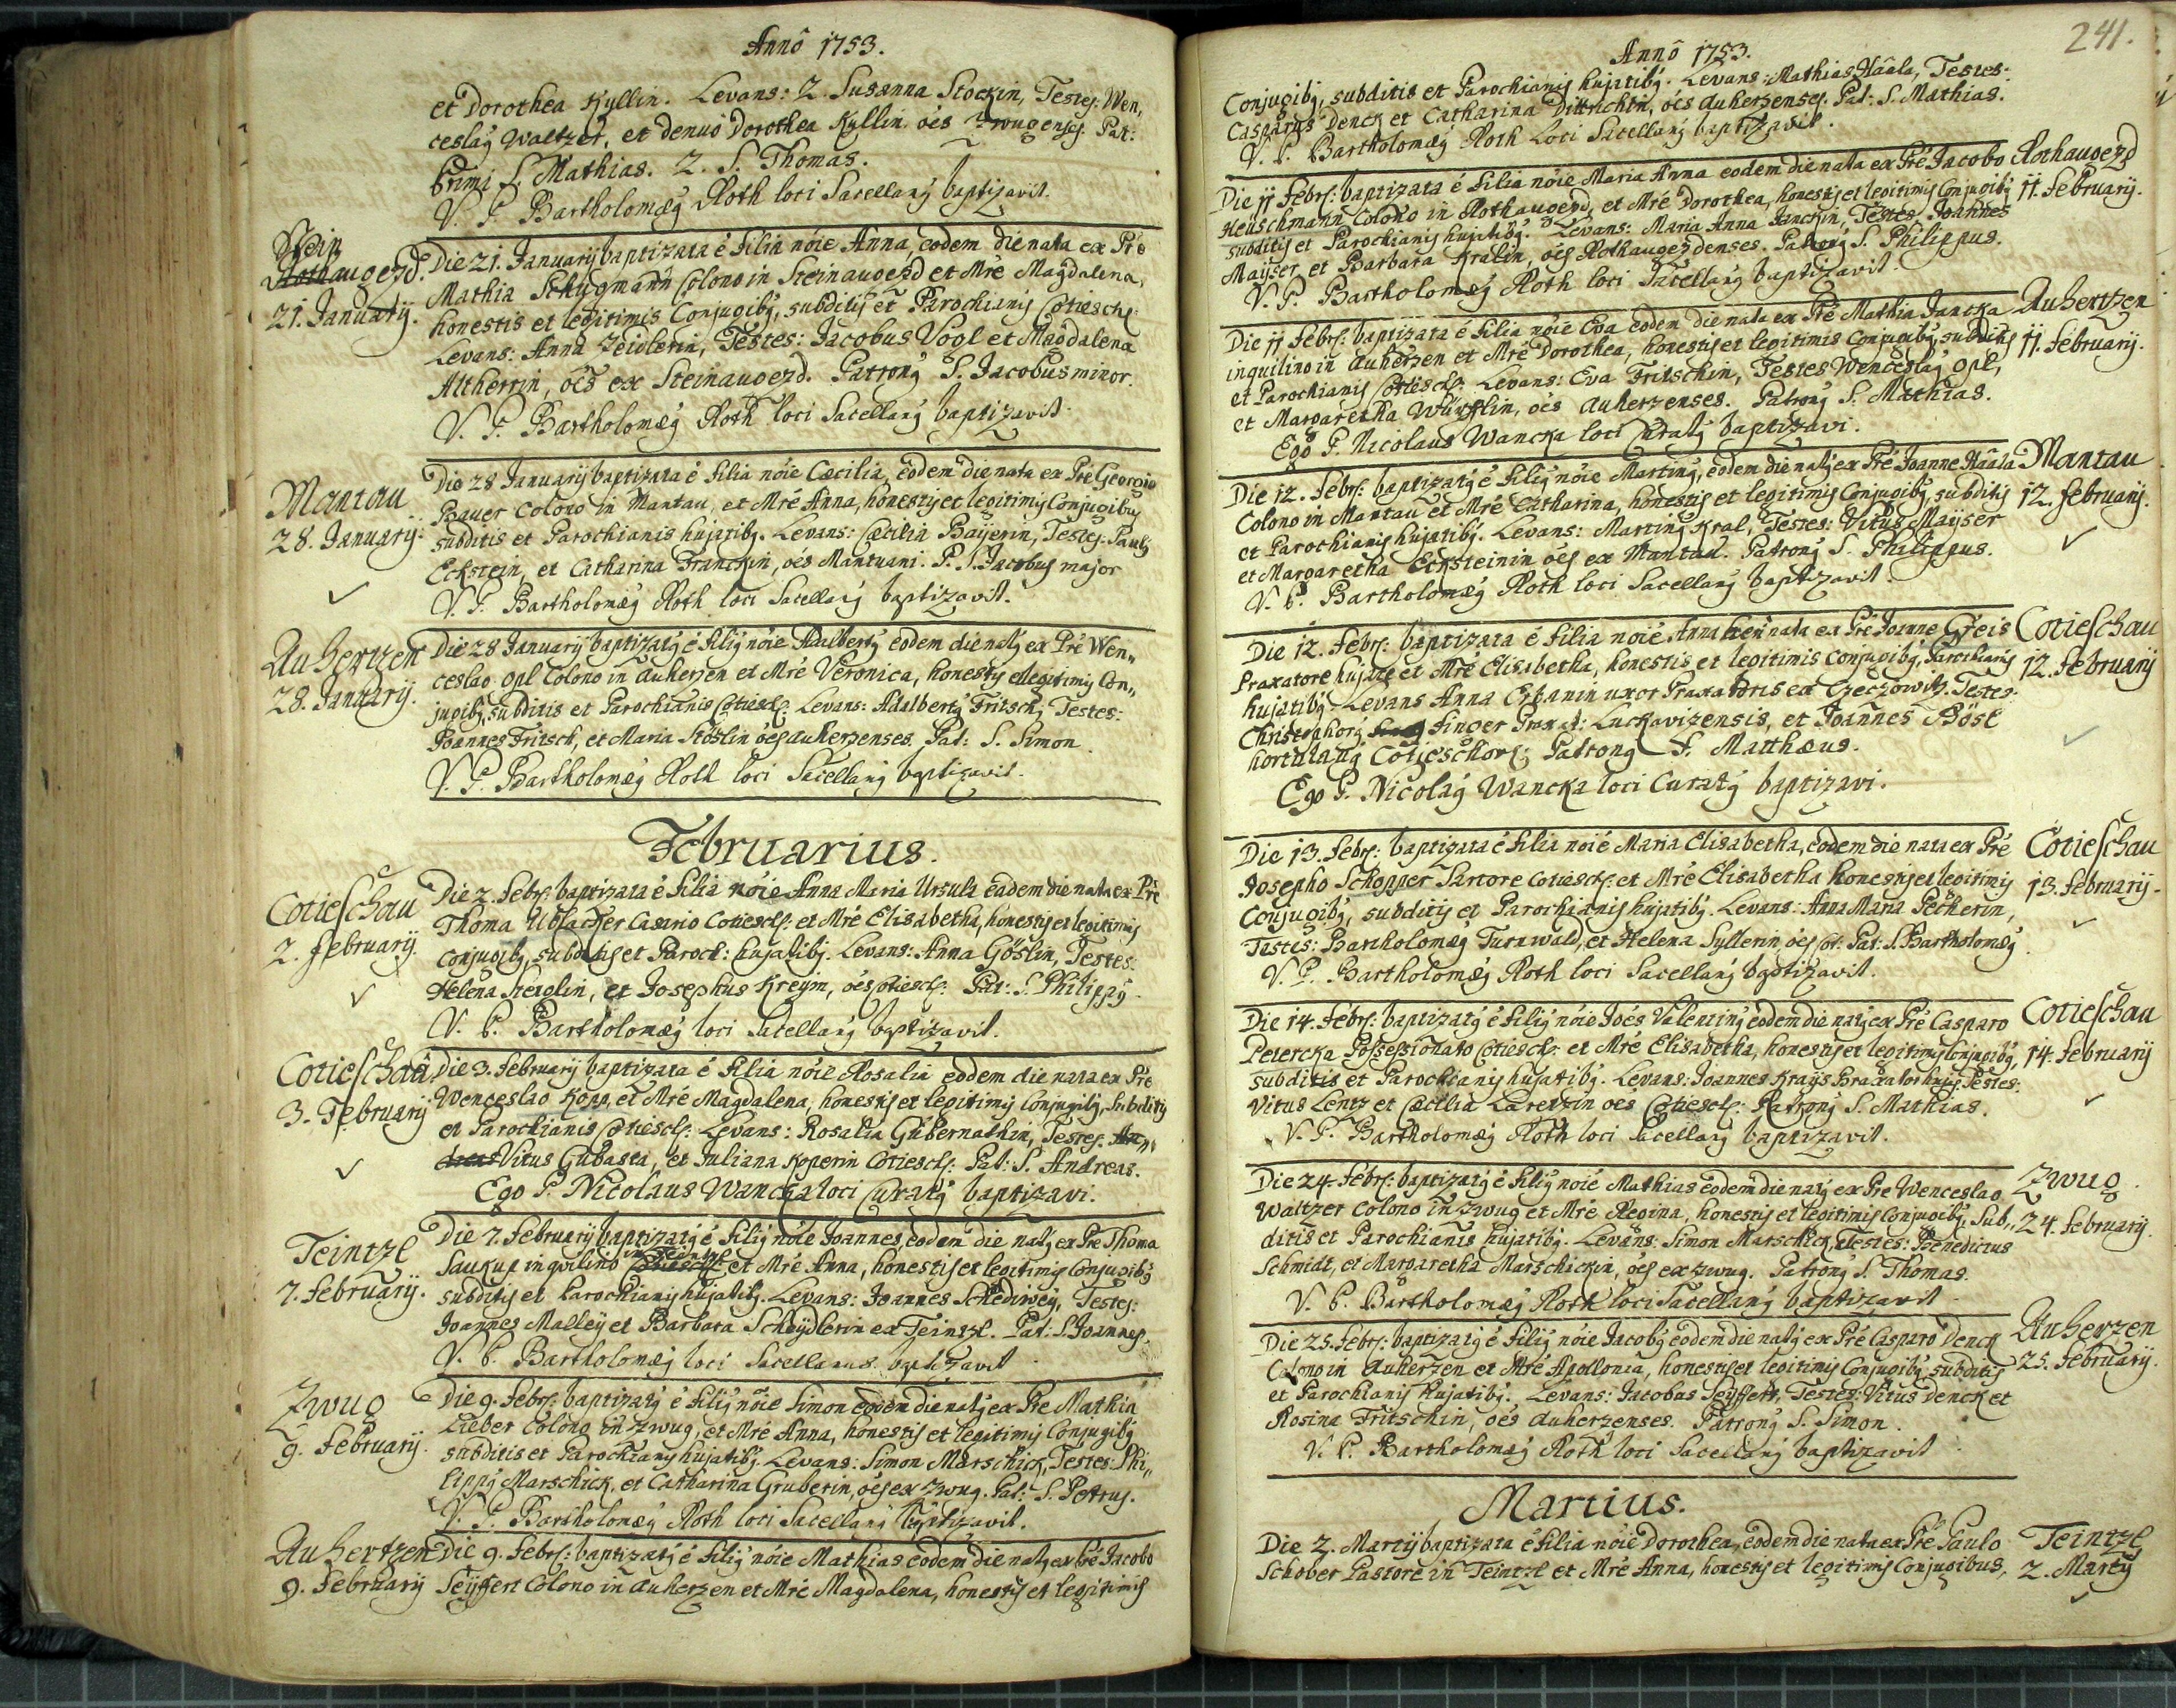 Anno 1753.
et Dorothea Kyllin. Levans: 2. Susanna Stockin, Testes: Wen,,
ceslaꝰ Waltzer, et denuo Dorothea Kyllin oẽs Zwugenses. Pat:
primi S. Mathias. 2. S. Thomas.
V. P. Bartholomæꝰ Roth loci Sacellanꝰ baptizavit.
Stein
Rothaugezd.
21. Januarij.
Die 21. Januarij baptizata ẽ Filia nõie Anna, eodem die nata ex Prẽ
Mathia Schugmann Colono in Steinaugezd et Mrẽ Magdalena,
honestis et legitimis Conjugibꝰ, subditis et Parochianis Cotiesch:
Levans: Anna Zeidlerin, Testes: Jacobus Vogl et Magdalena
Altherrin, oẽs ex Steinaugezd. Patronꝰ S. Jacobus minor.
V. P. Bartholomæꝰ Roth loci Sacellanꝰ baptizavit.
Mantau
28. Januarij.
Die 28 Januarij baptizata ẽ Filia nõie Cæcilia, eodem die nata ex Prẽ Georgio
Bauer Colono in Mantau, et Mrẽ Anna, honestis et legitimis Conjugibus
subditis et Parochianis hujatibꝰ. Levans: Cæcilia Baijerin, Testes: Paulꝰ
Eckstein, et Catharina Franckin, oẽs Mantuani. P. S. Jacobus major
V. P. Bartholomæꝰ Roth loci Sacellanꝰ baptizavit.
Auhertzen
28. Januarij.
Die 28 Januarij baptizatꝰ ẽ Filiꝰ nõie Adalbertꝰ eodem die natꝰ ex Prẽ Wen,,
ceslao Opl Colono in Auherzen et Mrẽ Veronica, honestis et legitimis Con,,
jugibꝰ, subditis et Parochianis Cotiesch: Levans: Adalbertꝰ Fritsch, Testes:
Joannes Fritsch, et Maria Stöslin oẽs Auherzenses. Pat: S. Simon.
V. P. Bartholomæꝰ Roth loci Sacellanꝰ baptizavit.
Februarius.
Cotieschau
2. februarij.
Die 2. Febr: baptizata ẽ Filia nõie Anna Maria Ursula eadem die nata ex Prẽ
Thoma Casario Cotiesch: et Mrẽ Elisabetha, honestis et legitimis
conjugibꝰ, subditis et Paroch: hujatibꝰ. Levans: Anna Göslin, Testes:
Helena et Josephus Kreijm, oẽs Cotiesch: Pat: S. Philippꝰ.
V. P. Bartholomæꝰ loci Sacellanꝰ baptizavit.
Cotieschau
3. Februarij
Die 3. Februarij baptizata ẽ Filia nõie Rosalia eodem die nata ex Prẽ
Wenceslao Kopp, et Mrẽ Magdalena, honestis et legitimis Conjugibꝰ, Subditis
et Parochianis Cotiesch: Levans: Rosalia Gubernathin, Testes: An,,
dreas Vitus Gubasta, et Juliana Koperin Cotiesch: Pat: S. Andreas.
Ego P. Nicolaus Wancka loci Curatꝰ baptizavi.
Teintzl
7. Februarij.
Die 7. Februarij baptizatꝰ ẽ Filiꝰ nõie Joannes, eodem die natꝰ ex Prẽ Thoma
in Teintzl
Saukup inquilino Cotiesch: et Mrẽ Anna, honestis et legitimis Conjugibꝰ
subditis et Parochianis hujatibꝰ. Levans: Joannes Schediweij, Testes:
Joannes Malleij et Barbara Scheijdlerin ex Teintzl. Pat: S. Joannes.
V. P. Bartholomæꝰ loci Sacellanus baptizavit
Zwug
9. Februarij.
Die 9. Febr: baptizatꝰ ẽ Filiꝰ nõie Simon eodem die natꝰ ex Prẽ Mathia
Lieber Colono in Zwug, et Mrẽ Anna, honestis et legitimis Conjugibꝰ
subditis et Parochianis hujatibꝰ. Levans: Simon Marschick, Testes: Phi,,
lippꝰ Marschick, et Catharina Gruberin, oẽs ex Zwug. Pat: S. Petrus.
V. P. Bartholomæꝰ Roth loci Sacellanꝰ baptizavit.
Auhertzen
9. Februarij
Die 9. Febr: baptizatꝰ ẽ Filiꝰ nõie Mathias eodem die natꝰ ex Prẽ Jacobo
Seijffert Colono in Auherzen et Mrẽ Magdalena, honestis et legitimis
241.
Anno 1753.
Conjugibꝰ, subditis et Parochianis hujatibꝰ. Levans: Mathias Hââla, Testes:
Casparus Denck et Catharina Dittrichin, oẽs Auherzenses. Pat: S. Mathias.
V. P. Bartholomæꝰ Roth Loci Sacellanꝰ baptizavit.
Rothaugezd
11. Februarij.
Die 11 Febr: baptizata ẽ Filia nõie Maria Anna eodem die nata ex Prẽ Jacobo
Heuschmann Colono in Rothaugezd, et Mrẽ Dorothea, honestis et legitimis Conjugibꝰ
subditis et Parochianis hujatibꝰ. Levans: Maria Anna Janckin, Testes, Joannes
Maijser et Barbara Kralin, oẽs Rothaugezdenses. Patronꝰ S. Philippus.
V. P. Bartholomæꝰ Roth loci Sacellanꝰ baptizavit.
Auhertzen
11. Februarij.
Die 11 Febr: baptizata ẽ Filia nõie Eva eodem die nata ex Prẽ Mathia Jancka
inquilino in Auherzen et Mrẽ Dorothea, honestis et legitimis Conjugibꝰ, subditis
et Parochianis Cotiesch: Levans: Eva Fritschin, Testes Wenceslaꝰ Opl,
et Margaretha oẽs Auherzenses. Patronꝰ S. Mathias.
Ego P. Nicolaus Wancka loci Curatꝰ baptizavi.
Mantau
12. Februarij.
Die 12. Febr: baptizatꝰ ẽ Filiꝰ nõie Martinꝰ, eodem die natꝰ ex Prẽ Joanne Hââla
Colono in Mantau et Mrẽ Catharina, honestis et legitimis Conjugibꝰ, subditis
et Parochianis hujatibꝰ. Levans: Martinꝰ Kral, Testes: Vitus Maijser
et Margaretha Ecksteinin oẽs ex Mantau. Patronꝰ S. Philippus.
V. P. Bartholomæꝰ Roth loci Sacellanꝰ baptizavit.
Cotieschau
12. Februarij
Die 12. Febr: baptizata ẽ Filia nõie Anna nata ex Prẽ Joanne Geis
Praxatore hujate et Mrẽ Elisabetha, honestis et legitimis Conjugibꝰ, Parochianis
hujatibꝰ. Levans Anna uxor Praxatoris ex Czeczowitz. Testes:
Christophorꝰ Finger Luckavizensis, et Joannes Böse
hortulanꝰ Cotieschov: Patronꝰ S. Matthæus.
Ego P. Nicolaꝰ Wancka loci Curatꝰ baptizavi.
Cotieschau
13. Februarij.
Die 13. Febr: baptizata ẽ Filia nõie Maria Elisabetha, eodem die nata ex Prẽ
Josepho Schopper Sartore Cotiesch: et Mrẽ Elisabetha honestis et legitimis
Conjugibꝰ, subditis et Parochianis hujatibꝰ. Levans: Anna Maria Pecherin,
Testes: Bartholomæꝰ Turnwald, et Helena Syllerin oẽs Cot: Pat: S. Bartholomæꝰ.
V. P. Bartholomæꝰ Roth loci Sacellanꝰ baptizavit.
Cotieschau
14. Februarij
Die 14. Febr: baptizatꝰ ẽ Filiꝰ nõie Joẽs Valentinꝰ eodem die natꝰ ex Prẽ Casparo
Petercka Possessionato Cotiesch: et Mrẽ Elisabetha, honestis et legitimis Conjugibꝰ,
subditis et Parochianis hujatibꝰ. Levans: Joannes Kraijs Praxator hujas, Testes:
Vitus Lentz et Cæcilia Laretzin oẽs Cotiesch: Patronꝰ S. Mathias.
V. P. Bartholomæꝰ Roth loci Sacellanꝰ baptizavit.
Zwug
24. Februarij.
Die 24. Febr: baptizatꝰ ẽ Filiꝰ nõie Mathias eodem die natꝰ ex Prẽ Wenceslao
Waltzer Colono in Zwug et Mrẽ Regina, honestis et legitimis Conjugibꝰ, Sub,,
ditis et Parochianis hujatibꝰ. Levans: Simon Marschick, Testes: Benedictus
Schmidt, et Margaretha Marschickin, oẽs ex Zwug. Patronꝰ S. Thomas.
V. P. Bartholomæꝰ Roth loci Sacellanꝰ baptizavit
Auherzen
25. Februarij.
Die 25. Febr: baptizatꝰ ẽ Filiꝰ nõie Jacobꝰ eodem die natꝰ ex Prẽ Casparo Denck
Colono in Auherzen et Mrẽ Apollonia, honestis et legitimis Conjugibꝰ subditis
et Parochianis hujatibꝰ. Levans: Jacobus Seijffert, Testes: Vitus Denck et
Rosina Fritschin, oẽs Auherzenses. Patronꝰ S. Simon.
V. P. Bartholomæꝰ Roth loci Sacellanꝰ baptizavit
Martius.
Teintzl
2. Martij
Die 2. Martij baptizata ẽ Filia nõie Dorothea, eodem die nata ex Prẽ Paulo
Schober Pastore in Teintzl et Mrẽ Anna, honestis et legitimis Conjugibus,